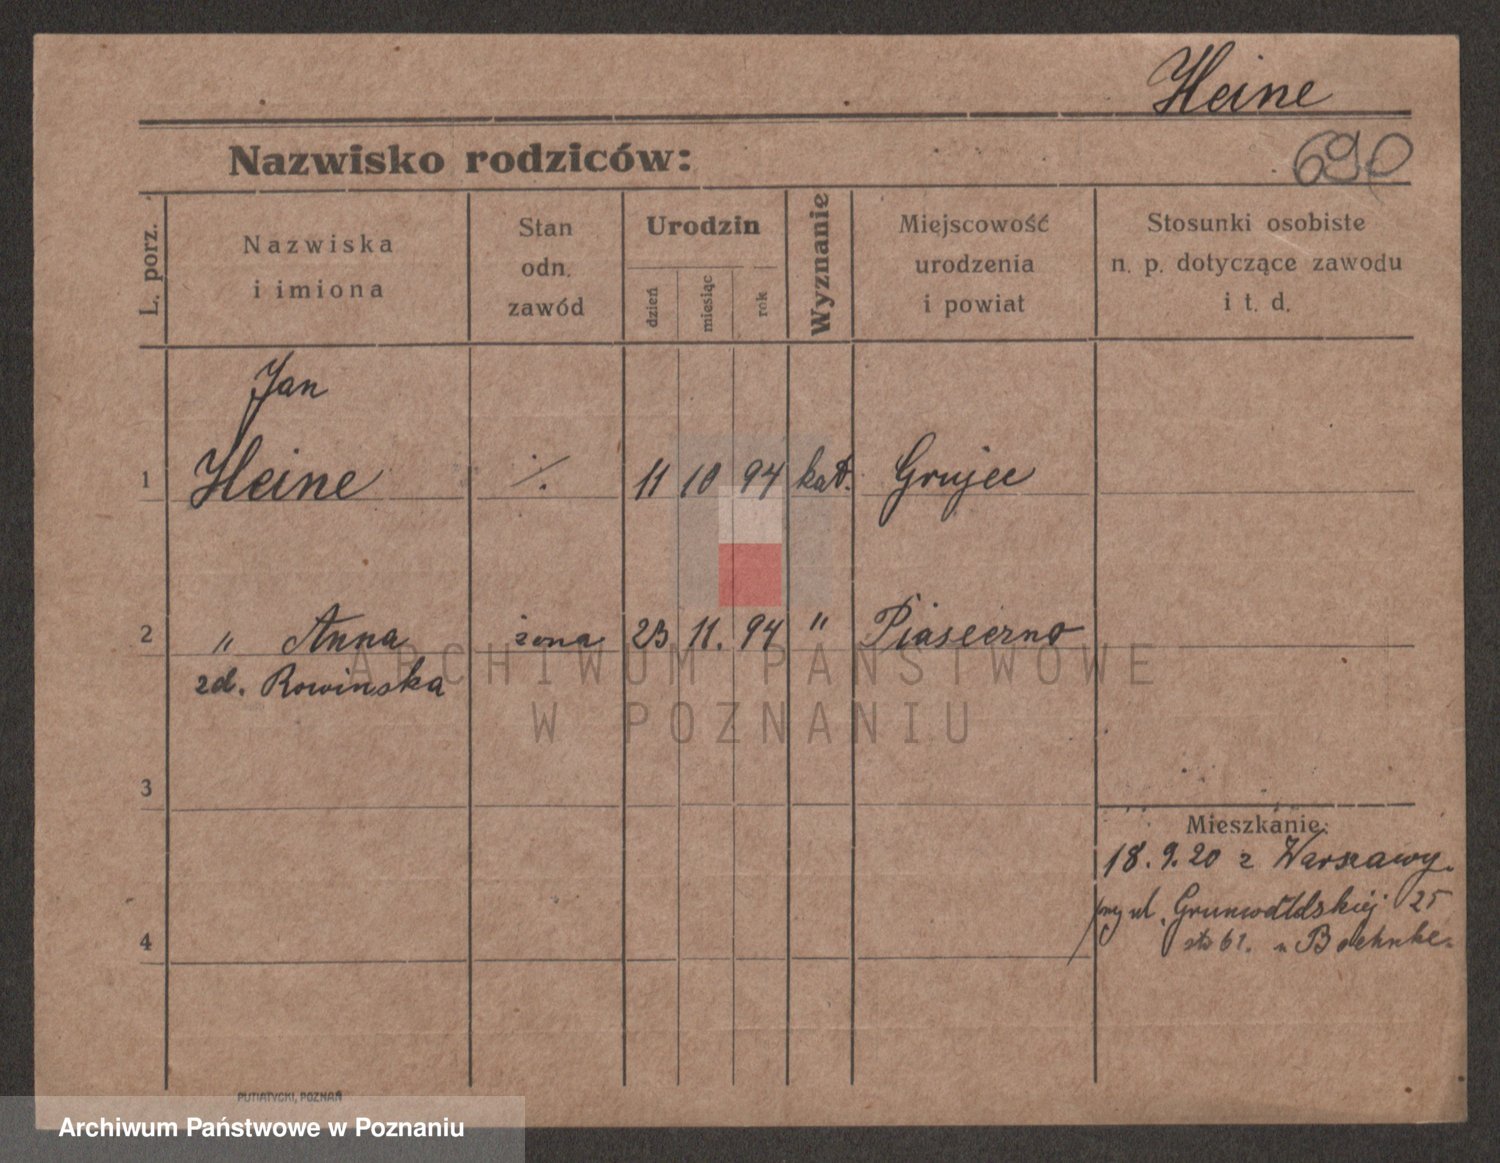 Heine
Nazwisko rodziców:
690
L. porz.
Nazwiska
i imiona
Stan
odn.
zawód
Urodzin
dzień
miesiąc
rok
Wyznanie
Miejscowość
urodzenia
i powiat
Stosunki osobiste
n. p. dotyczące zawodu
i t. d.
Jan
1 Heine ./. 11 10 94 kat. Grujec
2 " Anna żona 23 11. 94 " Piaseczno
zd. Rowinska
ARCHIWUM PAŃSTWOWE
W POZNANIU
3
Mieszkanie:
18.9.20 z Warszawy.
przy ul. Grunwaldskiej 25
u Boehnke.
4
PUTIATYCKI, POZNAŃ
Archiwum Państwowe w Poznaniu